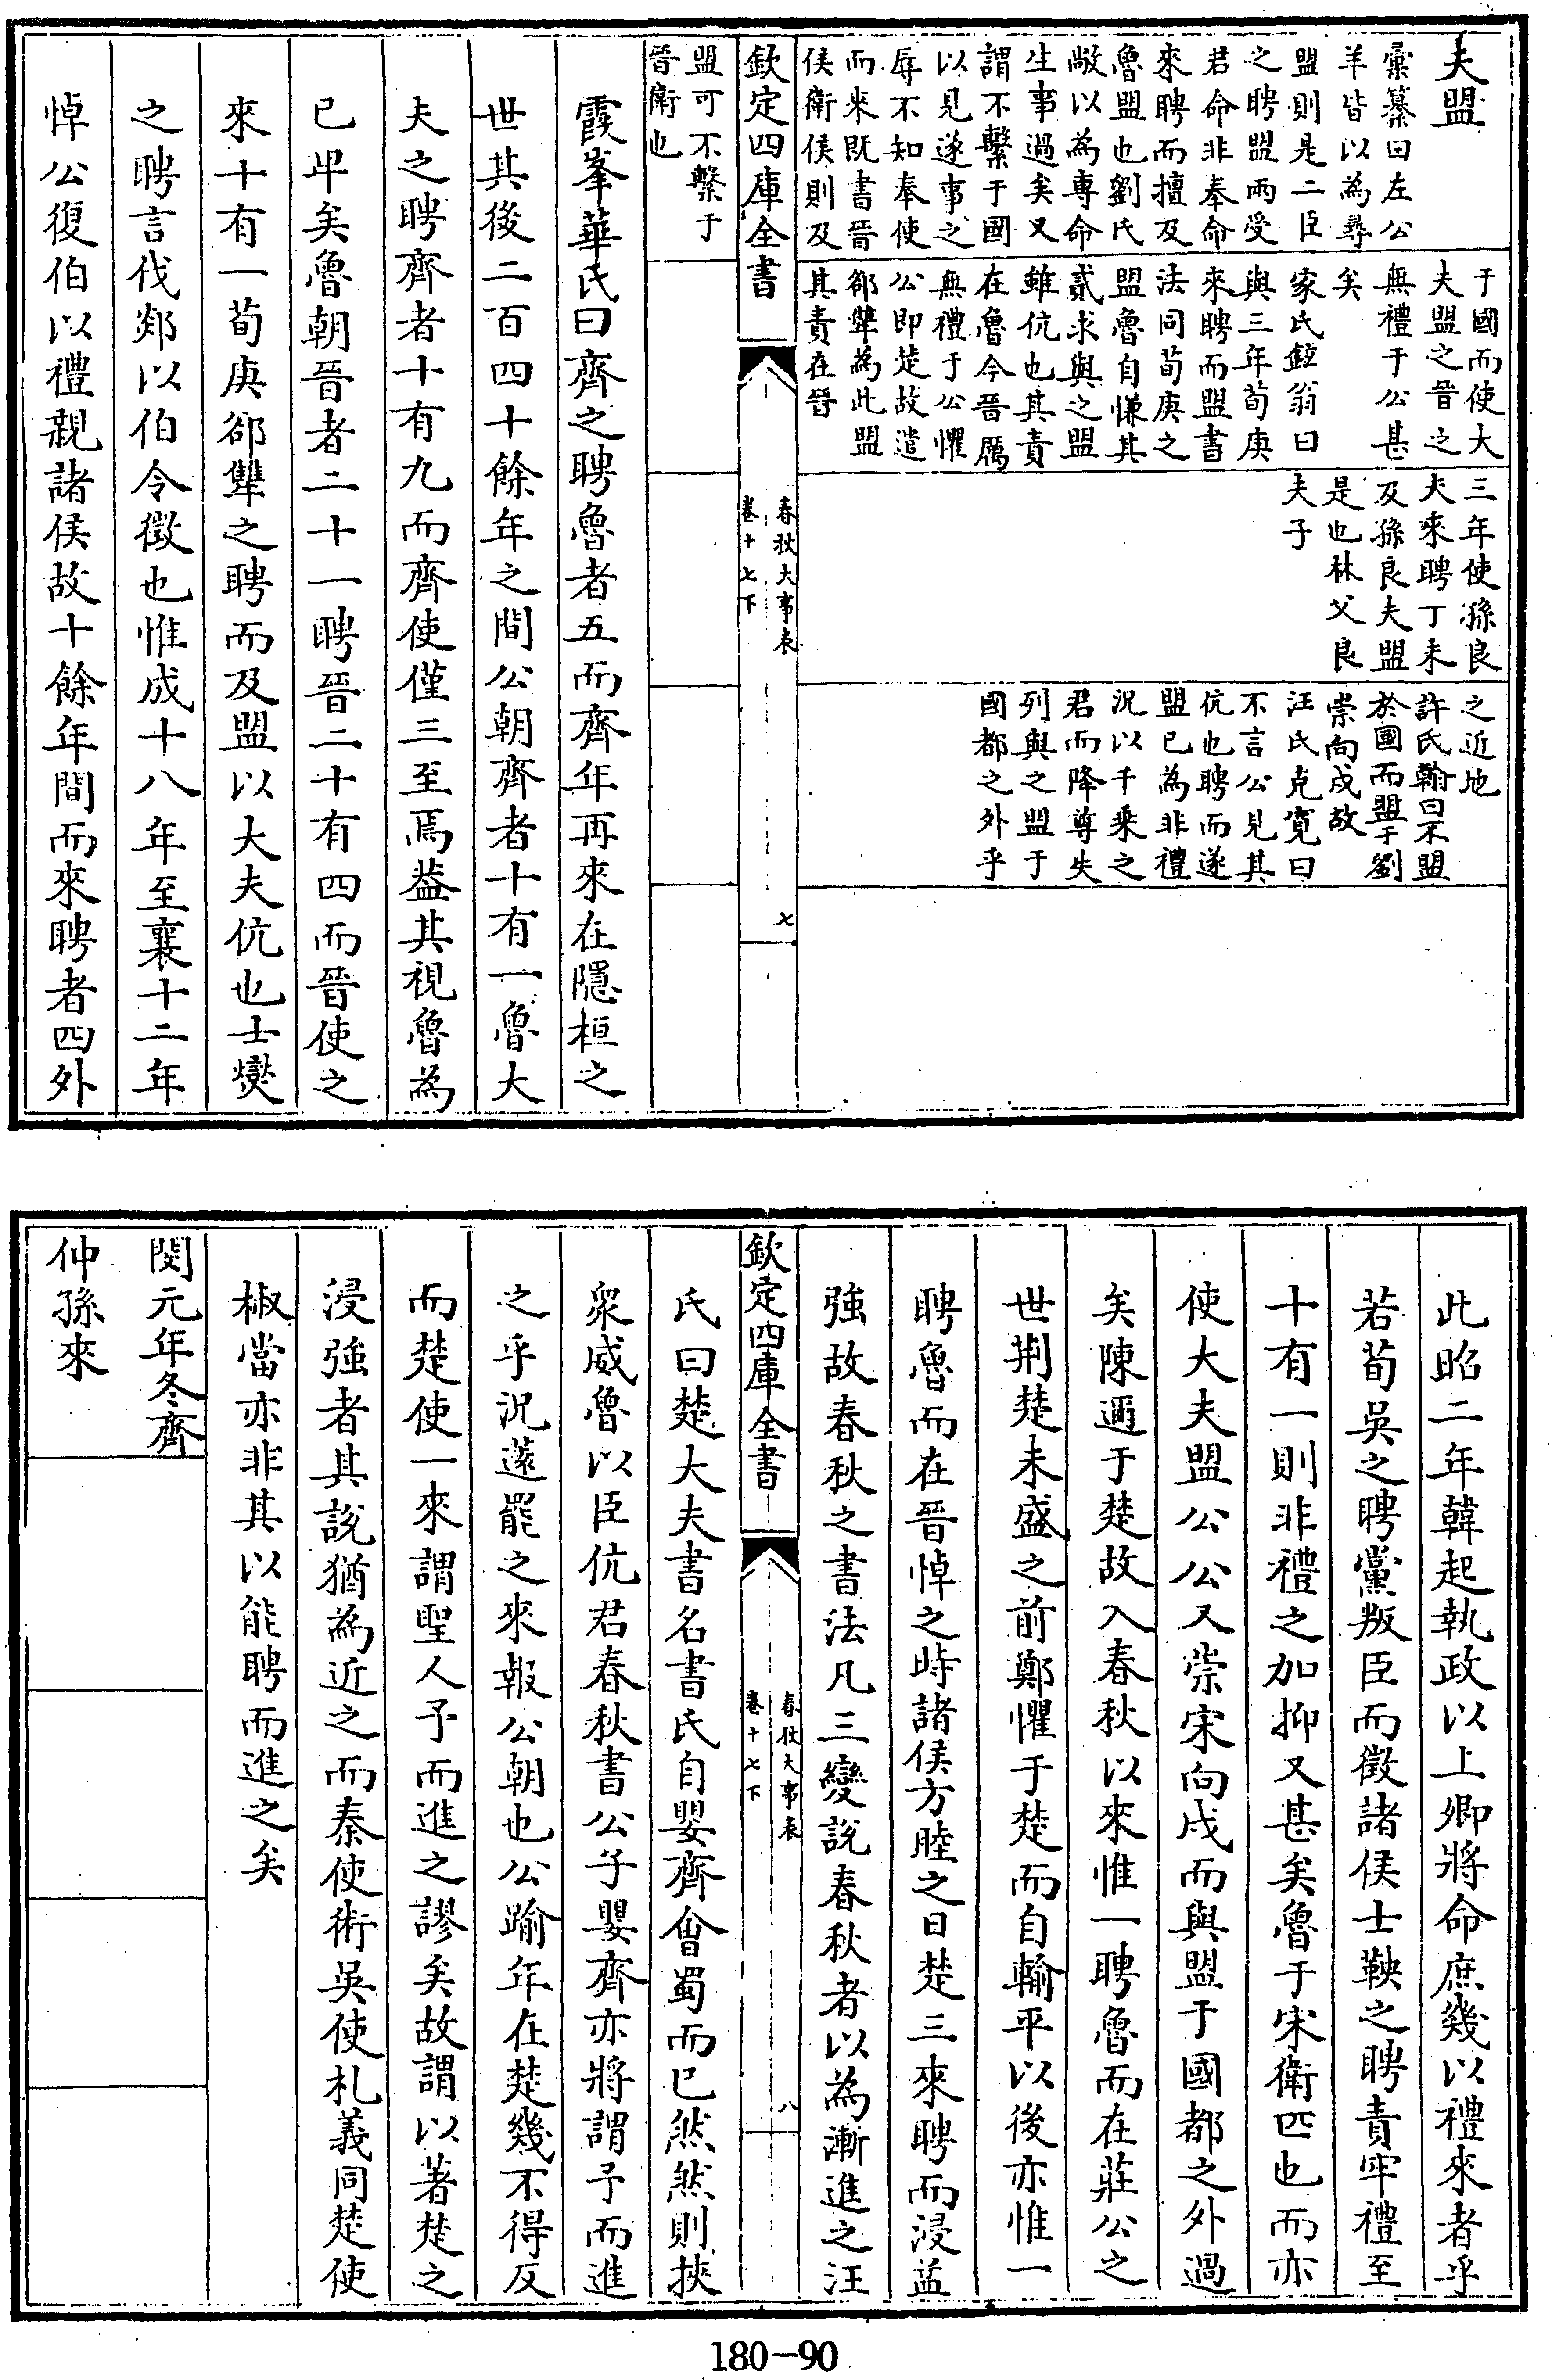 夫盟
彚纂曰左公
羊皆以為尋
盟則是二臣
之聘盟兩受
君命非奉命
來聘而擅及
魯盟也劉氏
敞以為專命
生事過矣又
謂不繫于國
以見遂事之
辱不知奉使
而来既書晉
侯衛侯則及
于國而使大
夫盟之晉之
無禮于公甚
矣
家氏鉉翁曰
與三年荀庚
來聘而盟書
法同荀庚之
盟魯自慊其
貳求與之盟
雖伉也其責
在魯今晉厲
無禮于公懼
公即楚故遣
郤犫為此盟
其責在晉
三年使孫良
夫來聘丁未
及孫良夫盟
是也林父良
夫子
之近地
許氏翰曰不盟
於國而盟于劉
崇向戌故
汪氏克寛曰
不言公見其
伉也聘而遂
盟已為非禮
況以千乘之
君而降尊失
列與之盟于
國都之外乎
欽定四庫全書
春秋大事表
卷十七下
七
盟可不繫于
晉衛也
霞峯華氏曰齊之聘魯者五而齊年再來在隱桓之
世其後二百四十餘年之間公朝齊者十有一魯大
夫之聘齊者十有九而齊使僅三至焉葢其視魯為
已卑矣魯朝晉者二十一聘晉二十有四而晉使之
來十有一荀庚郤犫之聘而及盟以大夫伉也士燮
之聘言伐郯以伯令徵也惟成十八年至襄十二年
悼公復伯以禮親諸侯故十餘年間而來聘者四外
此昭二年韓起執政以上卿將命庶幾以禮來者乎
若荀吳之聘黨叛臣而徵諸侯士鞅之聘責牢禮至
十有一則非禮之加抑又甚矣魯于宋衛匹也而亦
使大夫盟公公又崇宋向戌而與盟于國都之外過
矣陳邇于楚故入春秋以來惟一聘魯而在莊公之
世荆楚未盛之前鄭懼于楚而自輸平以後亦惟一
聘魯而在晉悼之時諸侯方睦之日楚三來聘而浸益
強故春秋之書法凡三變説春秋者以為漸進之汪
欽定四庫全書
春秋大事表
卷十七下
八
氏曰楚大夫書名書氏自嬰齊會蜀而已然然則挾
衆威魯以臣伉君春秋書公子嬰齊亦將謂予而進
之乎況薳罷之來報公朝也公踰年在楚幾不得反
而楚使一來謂聖人予而進之謬矣故謂以著楚之
浸強者其説猶為近之而秦使術吳使札義同楚使
椒當亦非其以能聘而進之矣
閔元年冬齊
仲孫來
180-90